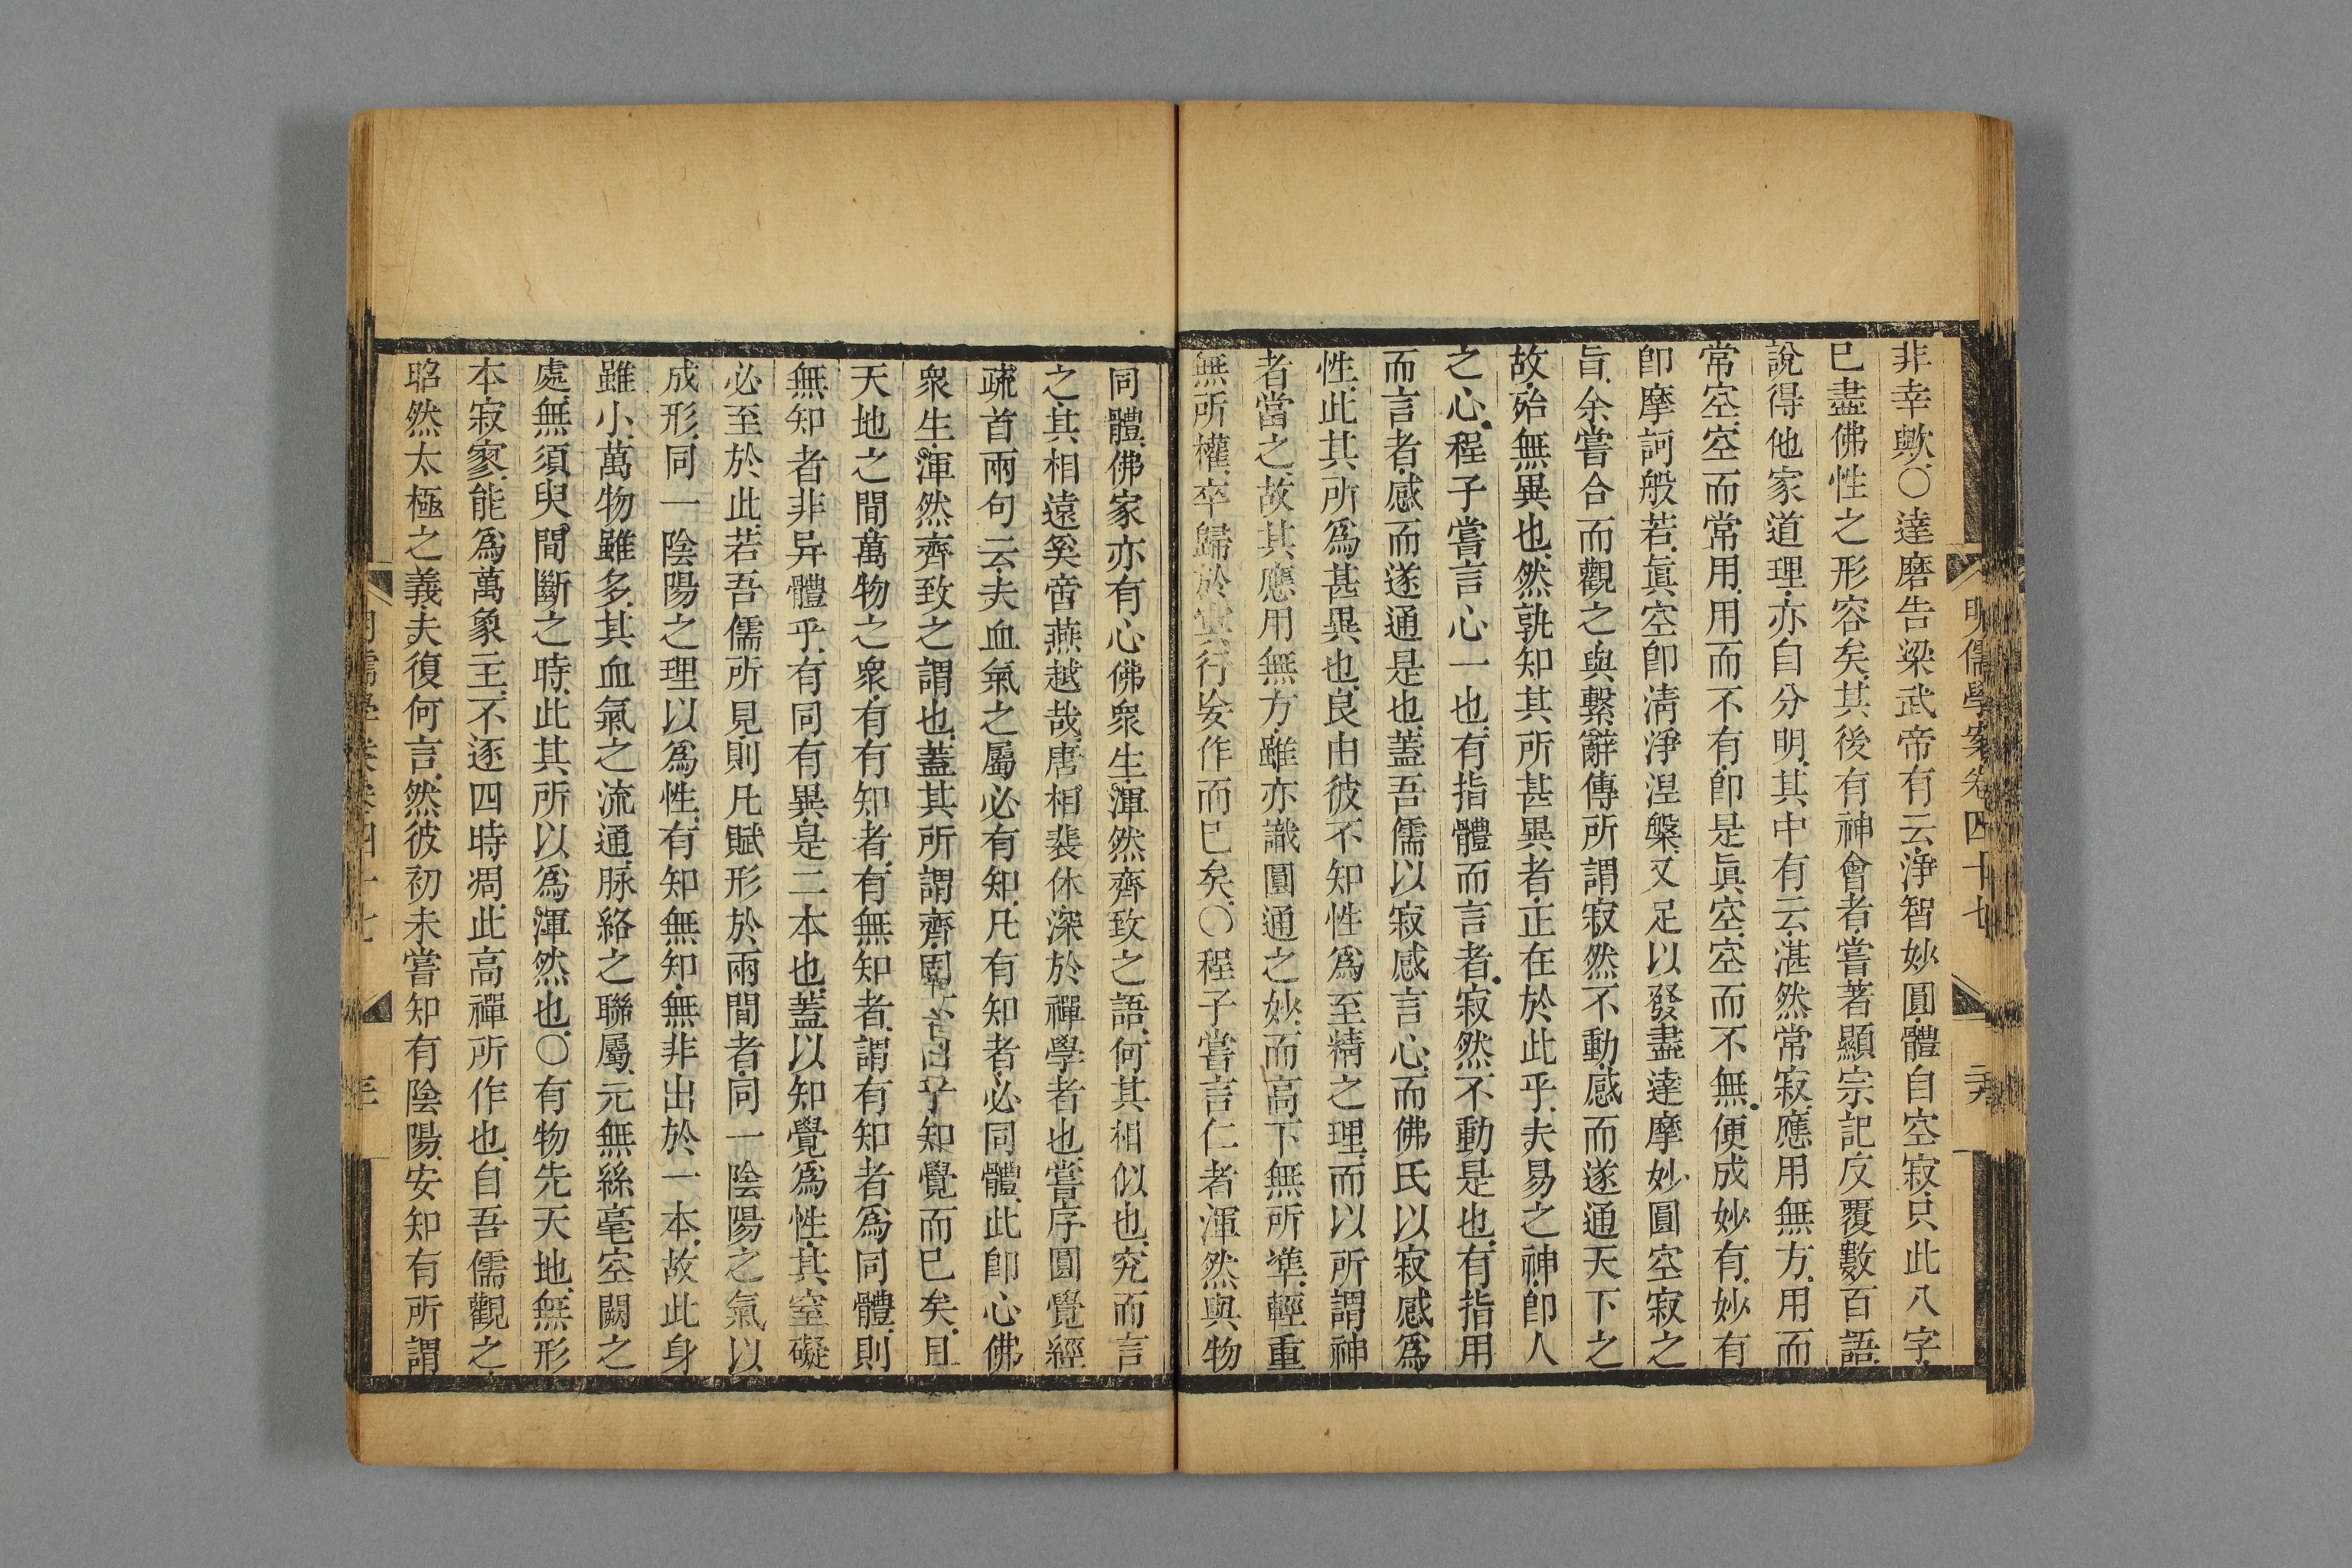 明儒學案卷四十七
非幸歟○達磨告梁武帝有云淨智妙圓體自空寂只此八字
已盡佛性之形容矣其後有神會者嘗著顯宗記反覆數百語
說得他家道理亦自分明其中有云湛然常寂應用無方用而
常空空而常用用而不有卽是眞空空而不無便成妙有妙有
卽摩訶般若眞空卽淸淨涅槃又足以發盡達摩妙圓空寂之
旨余嘗合而觀之與繫辭傳所謂寂然不動感而遂通天下之
故殆無異也然孰知其所甚異者正在於此乎夫易之神卽人
之心程子嘗言心一也有指體而言者寂然不動是也有指用
而言者感而遂通是也蓋吾儒以寂感言心而佛氏以寂感爲
性此其所爲甚異也良由彼不知性爲至精之理而以所謂神
者當之故其應用無方雖亦識圓通之妙而高下無所準輕重
無所權卒歸於冥行妄作而已矣○程子嘗言仁者渾然與物
同體佛家亦有心佛衆生渾然齊致之語何其相似也究而言
之其相遠奚啻燕越哉唐相裴休深於禪學者也嘗序圓覺經
疏首兩句云夫血氣之屬必有知凡有知者必同體此卽心佛
衆生渾然齊致之謂也蓋其所謂齊固不出乎知覺而已矣且
天地之間萬物之衆有有知者有無知者謂有知者爲同體則
無知者非异體乎有同有異是二本也蓋以知覺爲性其窒礙
必至於此若吾儒所見則凡賦形於兩間者同一陰陽之氣以
成形同一陰陽之理以爲性有知無知無非出於一本故此身
雖小萬物雖多其血氣之流通脉絡之聯屬元無絲毫空闕之
處無須臾間斷之時此其所以爲渾然也○有物先天地無形
本寂寥能爲萬象主不逐四時凋此高禪所作也自吾儒觀之
昭然太極之義夫復何言然彼初未嘗知有陰陽安知有所謂